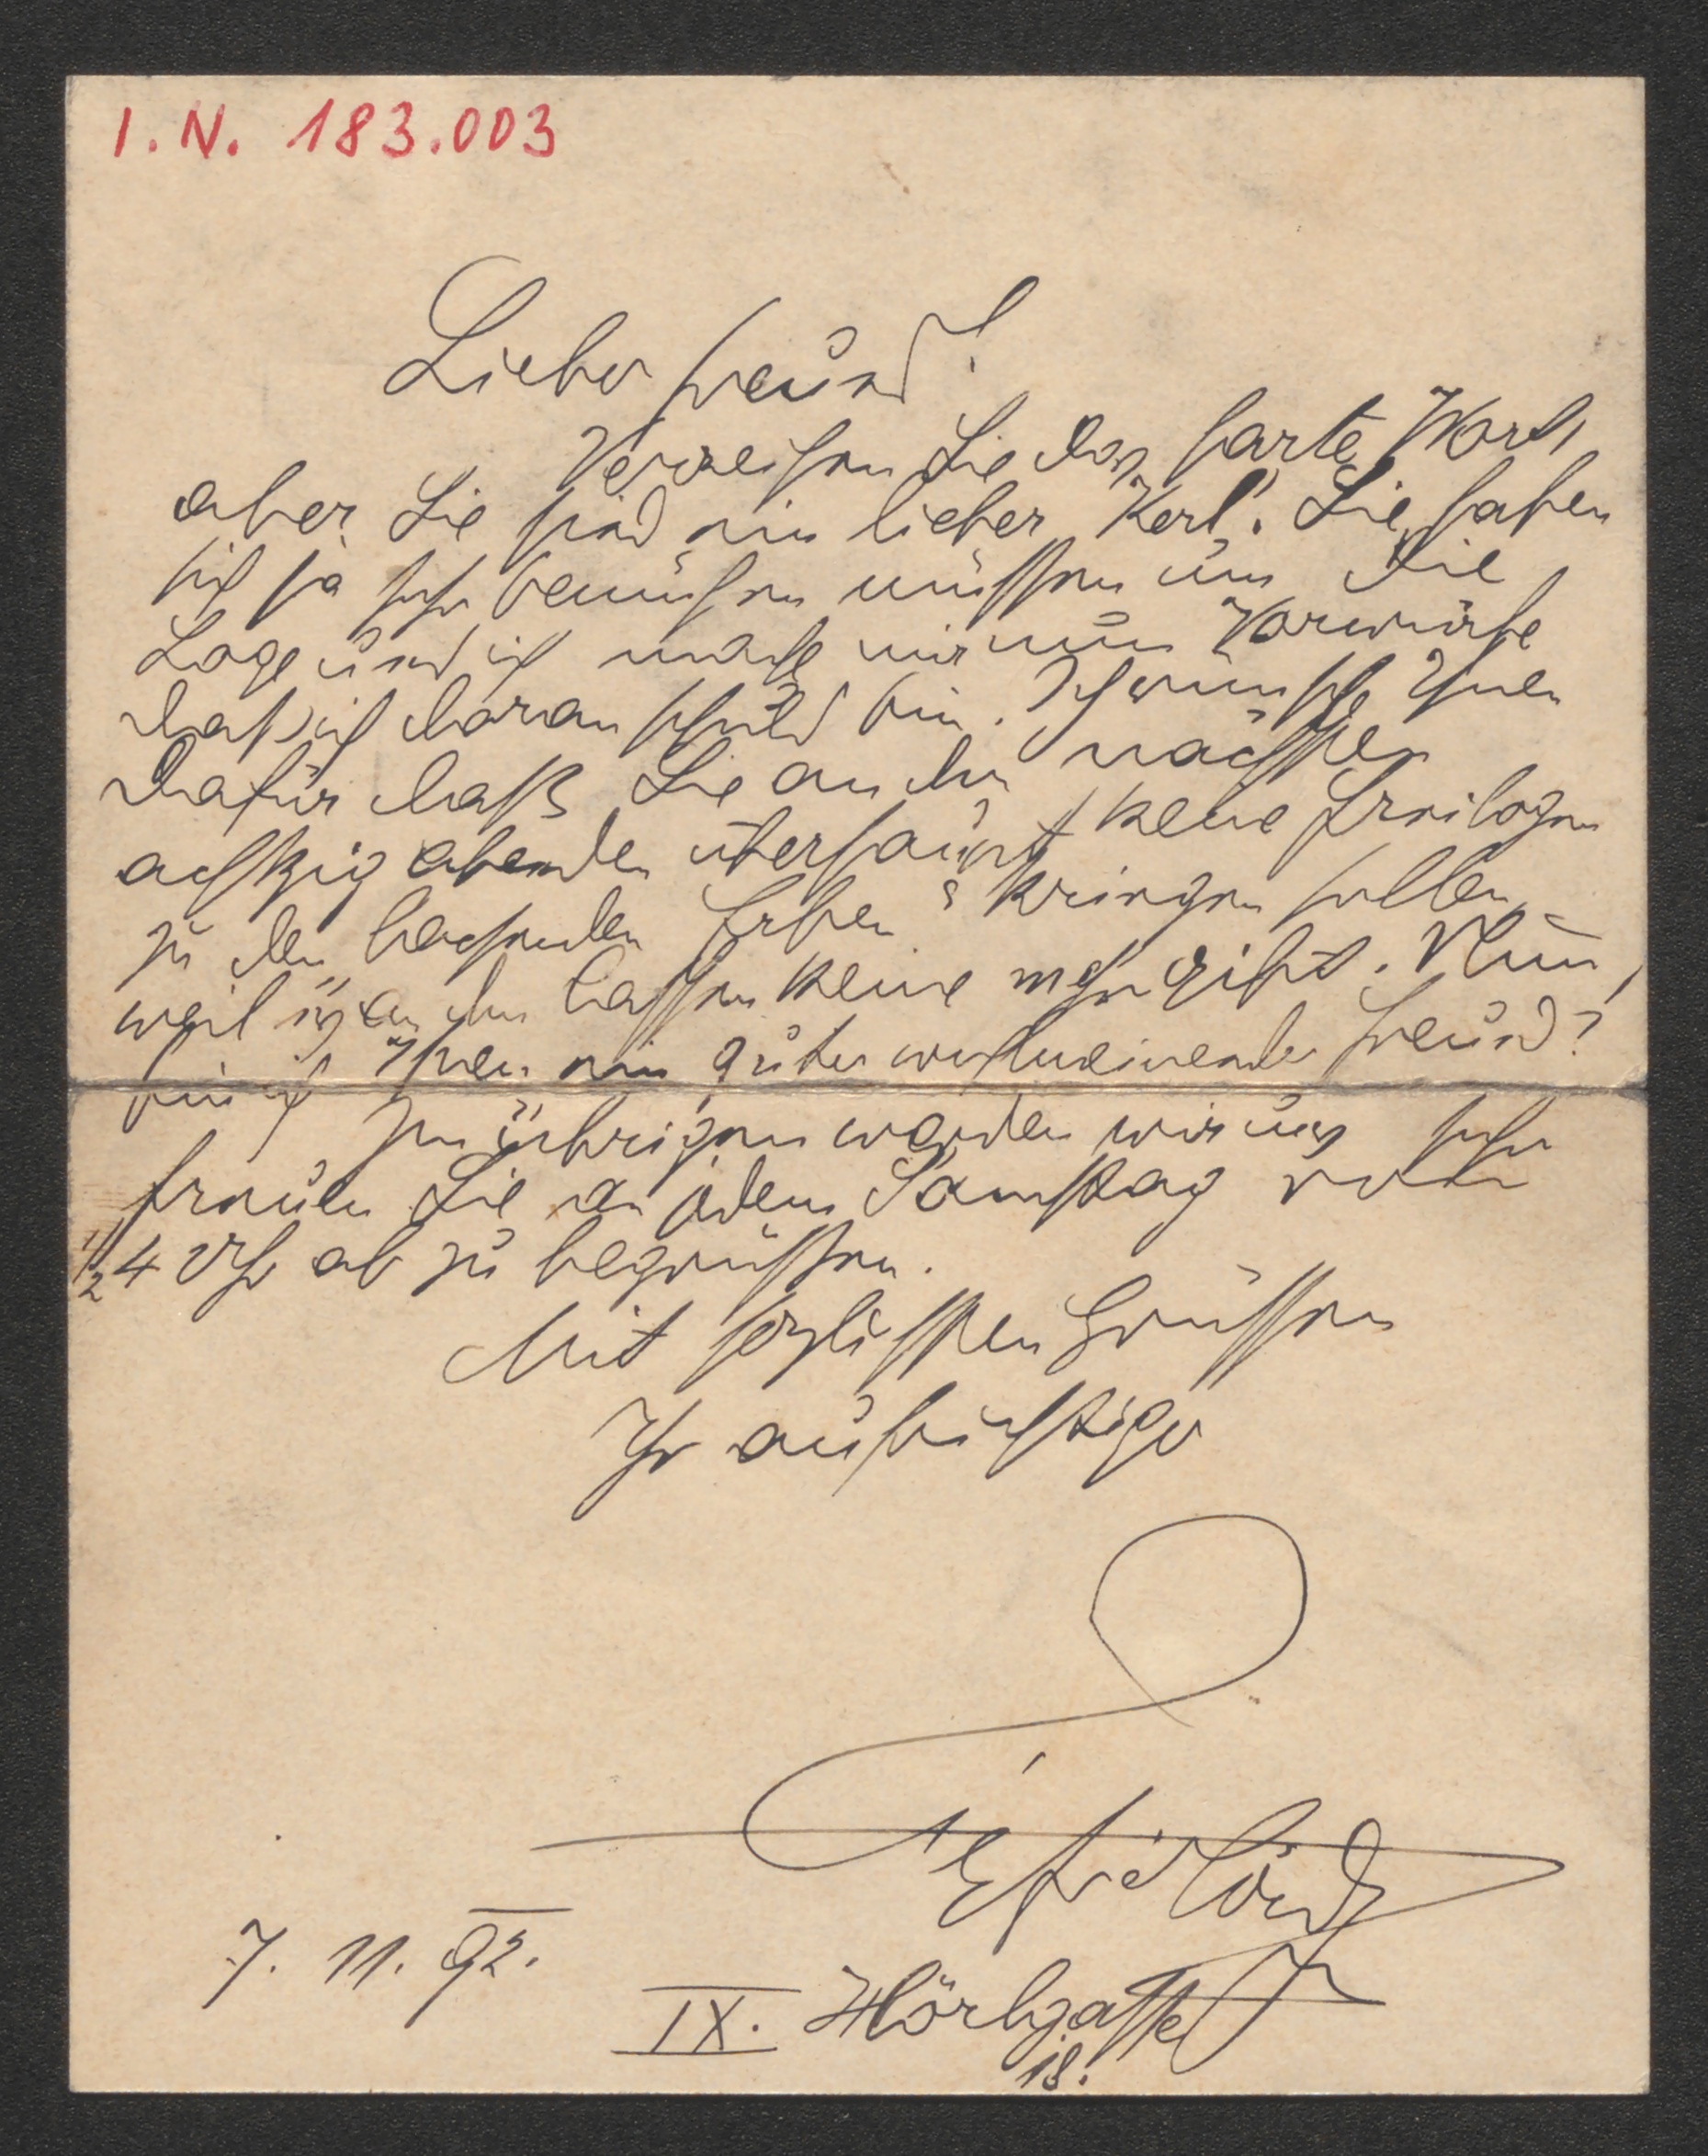 I. N. 183.003
Lieber Freund!
Verzeihen Sie das harte Wort,
aber Sie sind ein lieber Kerl! Sie haben
sich ja sehr bemühen müssen um die
Loge und ich mache mir nun Vorwürfe
daß ich daran schuld bin. Ich wünsche Ihnen
dafür daß Sie an den nächsten
achtzig abenden überhaupt keine Freilogen
zu den lachenden Erben kriegen sollen
weil es an den Cassen keine mehr gibt. Nun,
bin ich Ihnen ein guter wohlmeinender Freund?
Im übrigen werden wir uns sehr
freuen Sie an jedem Samstag von
1/2 4 Uhr ab zu begrüssen.
Mit herzlichsten Grüssen
Ihr aufrichtiger
7. 11. 92.
IX. Hörlgasse
18.